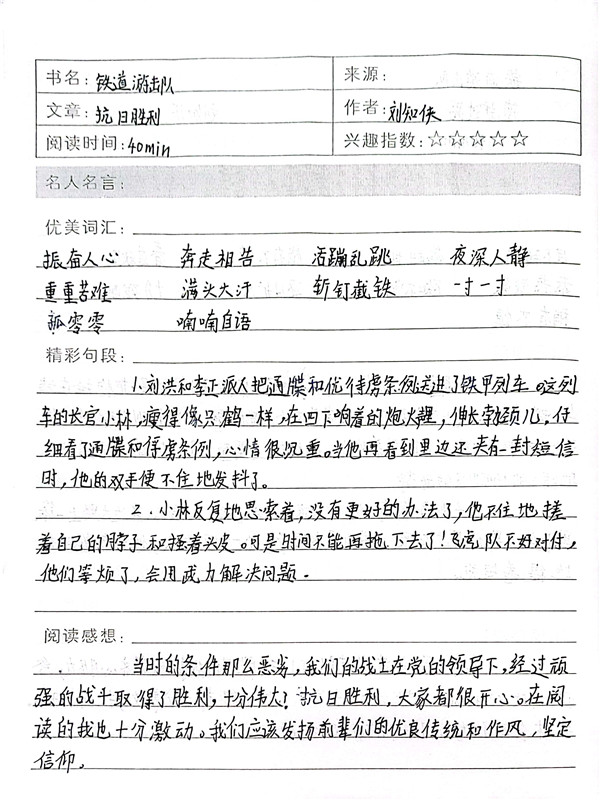 书名: 铁道游击队 来源:
文章: 抗日胜利 作者: 刘知侠
阅读时间: 40min 兴趣指数: ☆☆☆☆☆
名人名言:
优美词汇:
振奋人心 奔走相告 活蹦乱跳 夜深人静
重重苦难 满头大汗 斩钉截铁 一寸一寸
孤零零 喃喃自语
精彩句段:
1.刘洪和李正派人把通牒和优待虏条例送进了铁甲列车。这列
车的长官小林,瘦得像只鹤一样,在四下响着的炮火里,伸长脖颈儿,仔
细看了通牒和俘虏条例,心情很沉重。当他再看到里边还夹有一封短信
时,他的双手便不住地发抖了。
2.小林反复地思索着,没有更好的办法了,他不住地搓
着自己的脖子和搔着头皮。可是时间不能再拖下去了!飞虎队不好对付,
他们等烦了,会用武力解决问题.
阅读感想:
当时的条件那么恶劣,我们的战士在党的领导下,经过顽
强的战斗取得了胜利,十分伟大!抗日胜利,大家都很开心。在阅
读的我也十分激动。我们应该发扬前辈们的优良传统和作风,坚定
信仰。